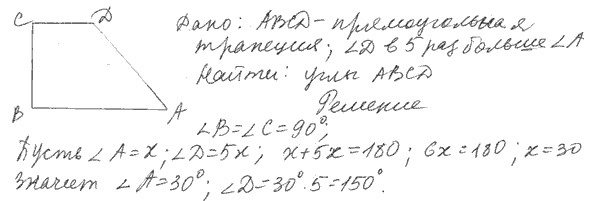 C D
Дано: ABCD - прямоугольная
трапеция; ∠D в 5 раз больше ∠A
Найти: углы ABCD
B A
Решение
∠B=∠C=90°;
Пусть ∠A=x; ∠D=5x; x+5x=180; 6x=180; x=30
Значит ∠A=30°; ∠D=30°·5=150°.